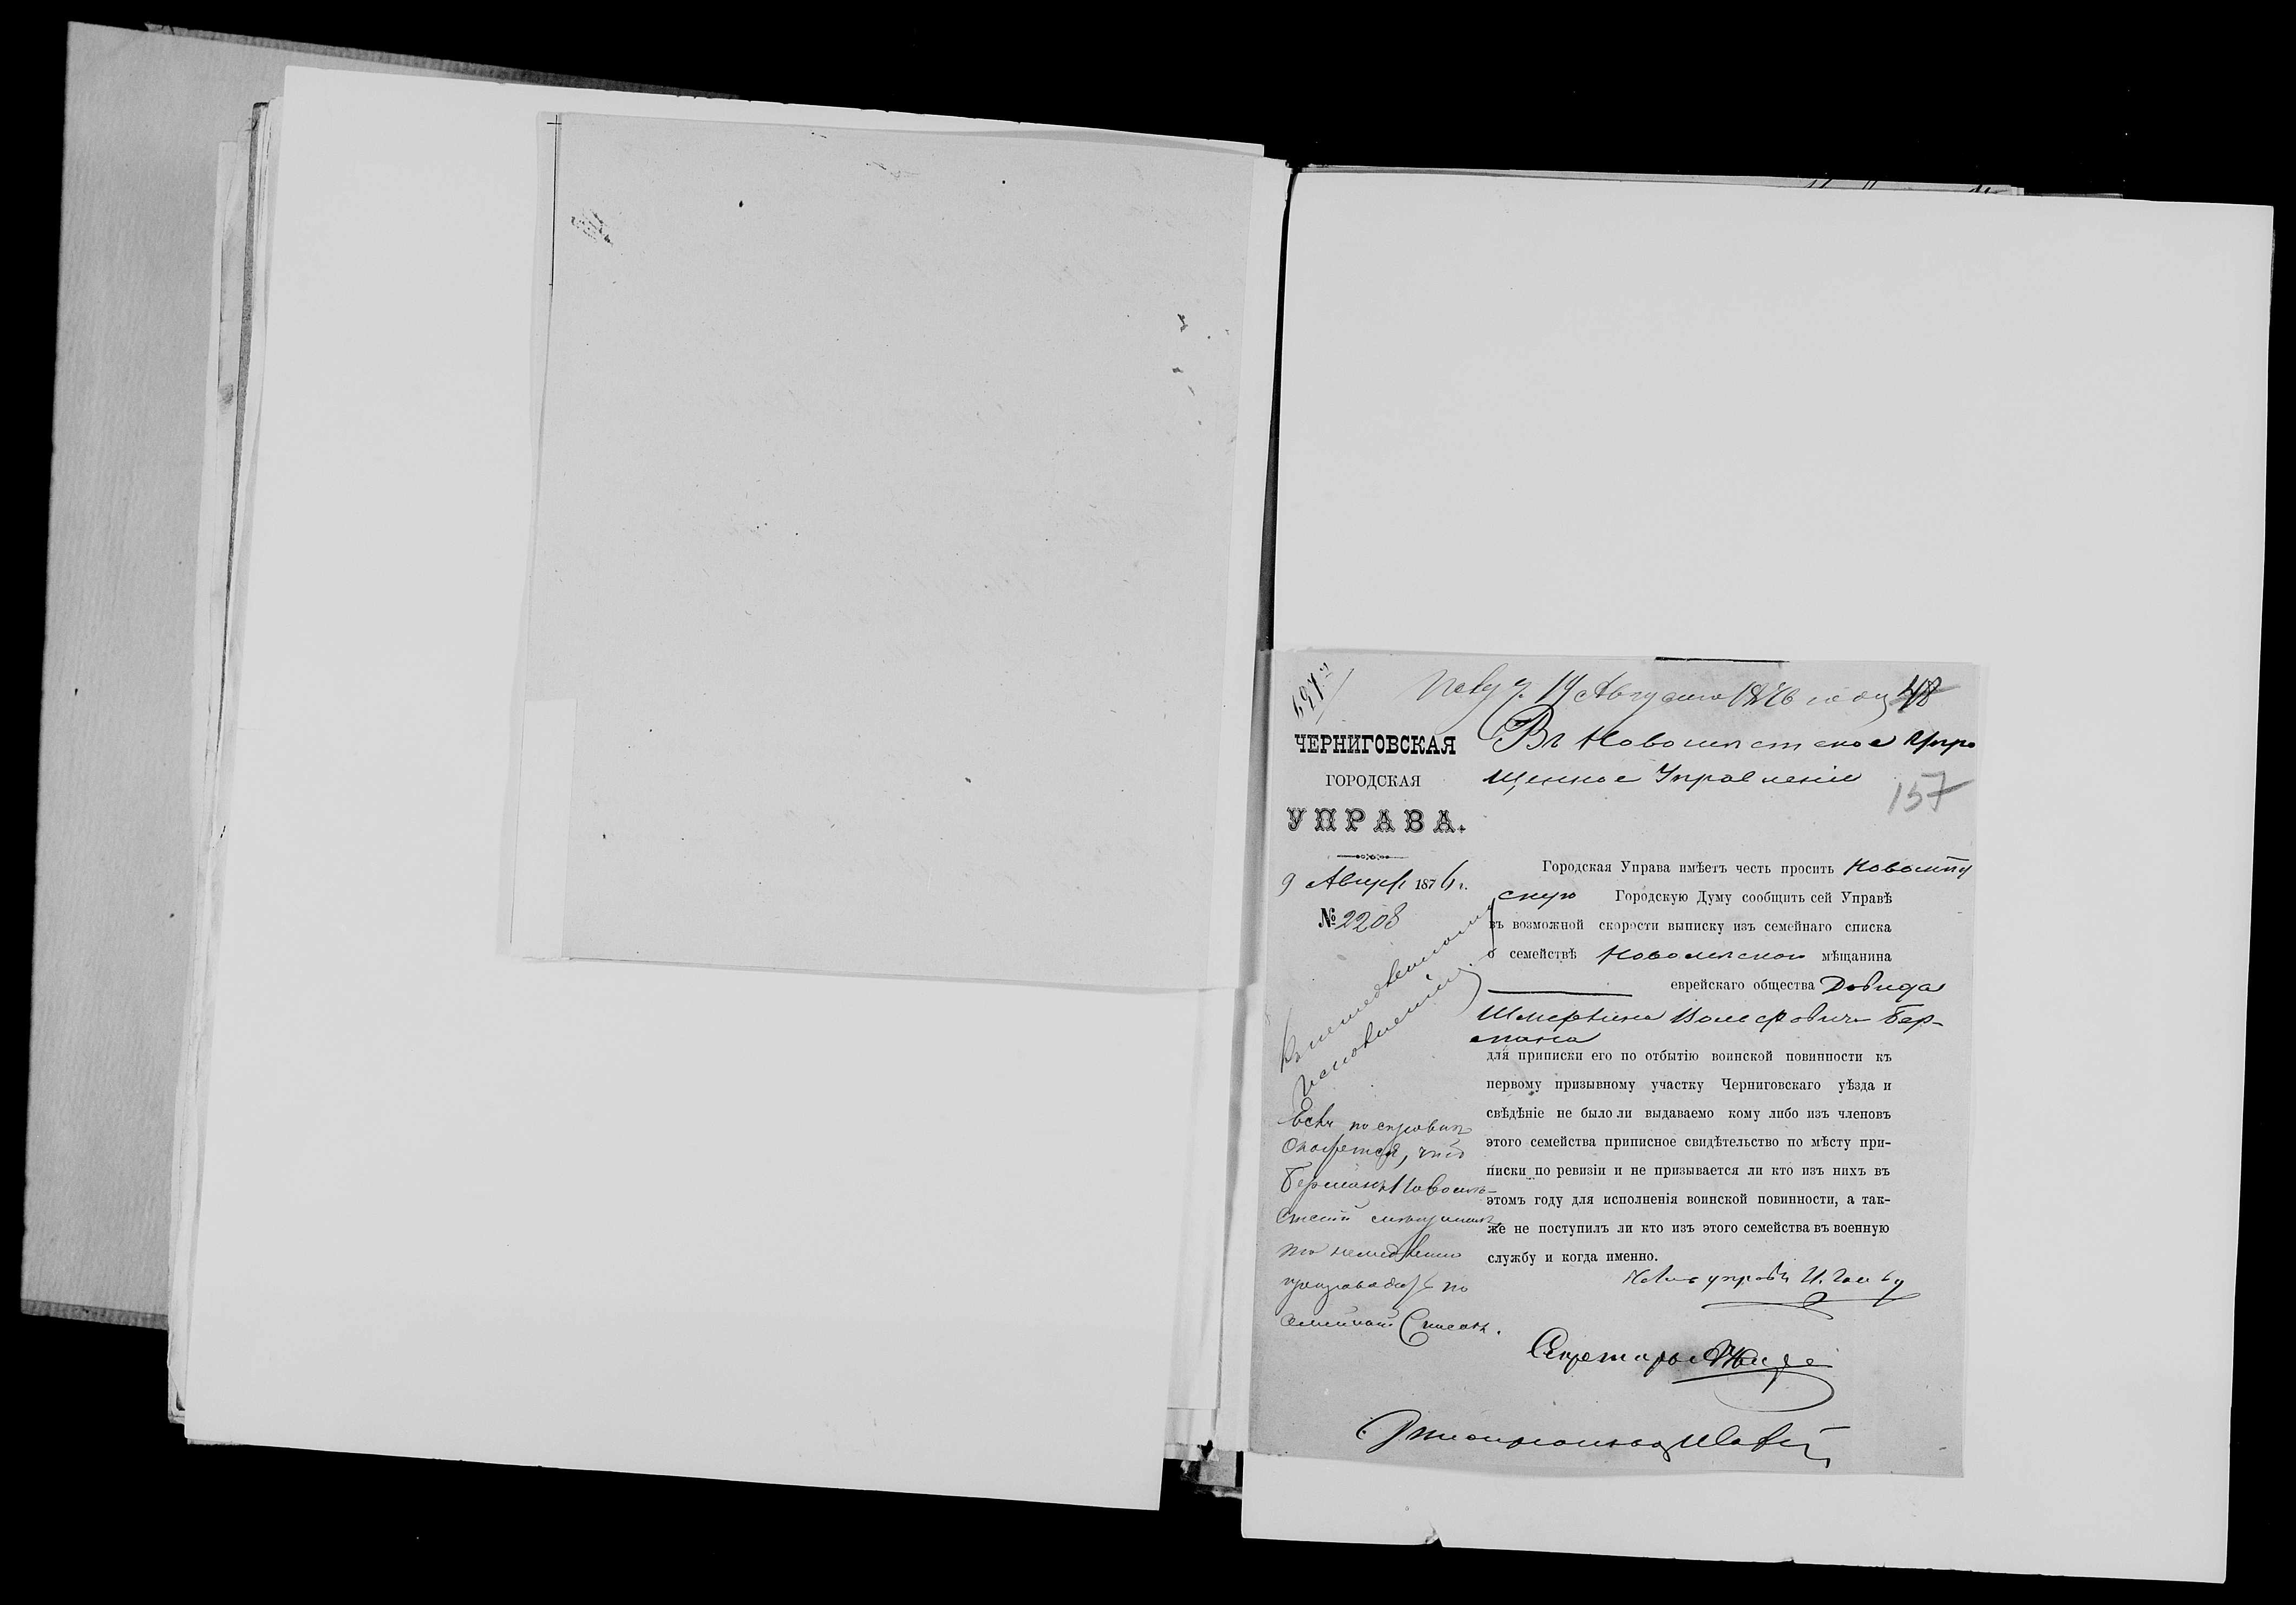 697
Пол. 14 Августа 1876 года 48
ЧЕРНИГОВСКАЯ
ГОРОДСКАЯ
УПРАВА.
9 Август 1876 г.
№ 2208
Въ Новомѣстское Упро
щенное Управленіе
157
Городская Управа имѣетъ честь просить Новомѣст
скую Городскую Думу сообщить сей Управѣ
въ возможной скорости выписку изъ семейнаго списка
о семействѣ Новомѣскаго мѣщанина
еврейскаго общества Довида
Шмеркина Бер-
мана
для приписки его по отбытію воинской повинности къ
первому призывному участку Черниговскаго уѣзда и
свѣдѣніе не было ли выдаваемо кому либо изъ членовъ
этого семейства приписное свидѣтельство по мѣсту при-
писки по ревизіи и не призывается ли кто изъ нихъ въ
этомъ году для исполненія воинской повинности, а так-
же не поступилъ ли кто изъ этого семейства въ военную
службу и когда именно.
Къ немедленному
исполненію.
Если по справкѣ
окажется, что
Берманъ Новомѣ-
стскій мѣщанинъ
то немедленно
препроводить по
семейный Списокъ.
Членъ управы
Секретарь